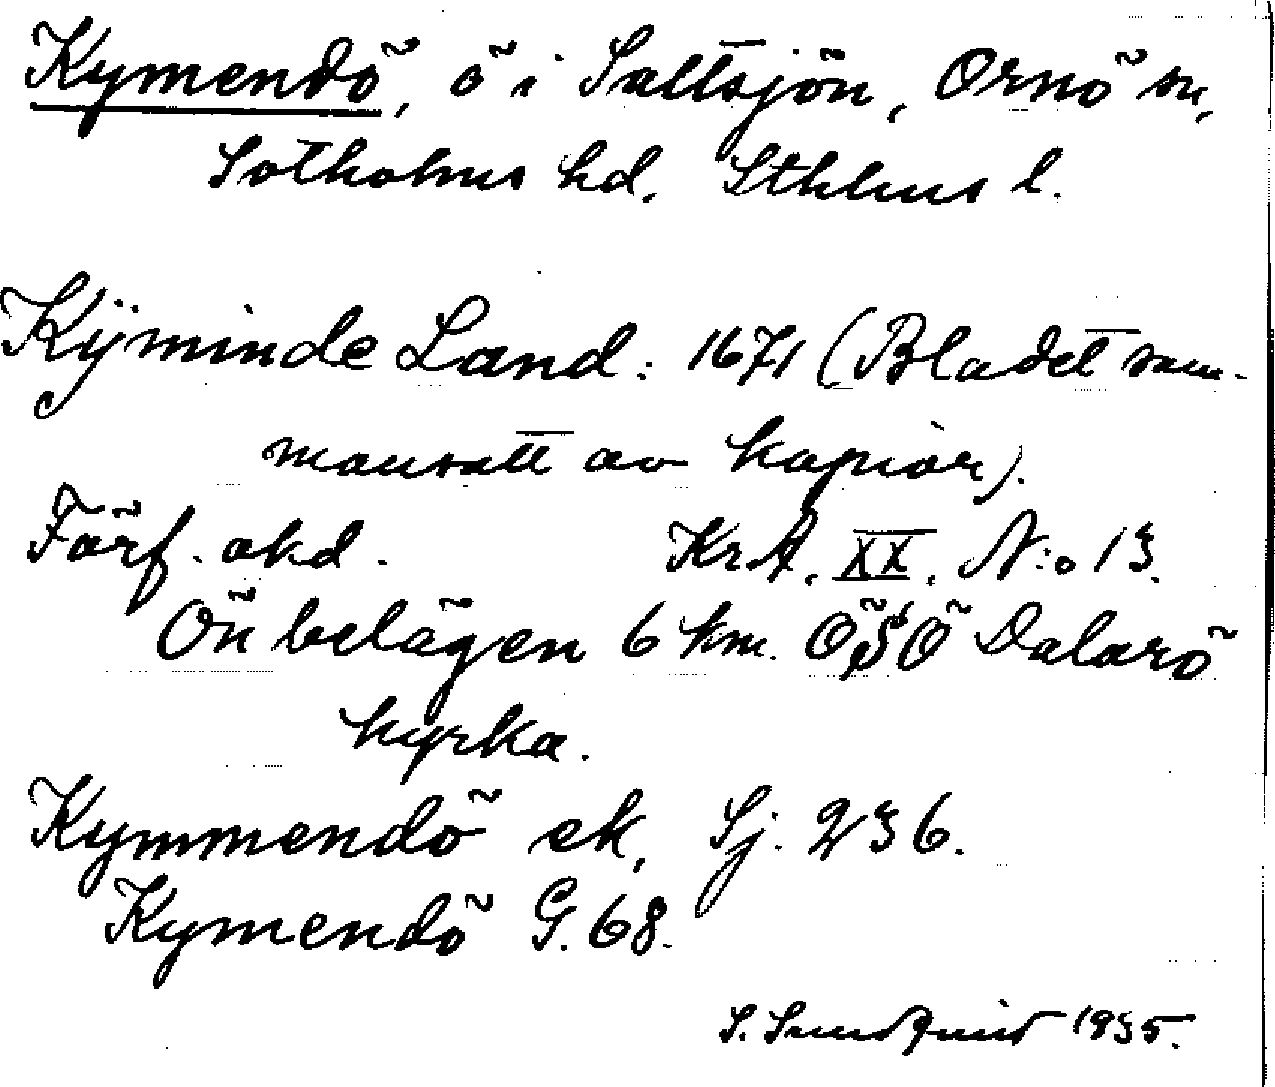 Kymendö, ö i Saltsjön, Ornö sn,
Sotholms hd. Sthlms l.
Kÿminde Land: 1671 (Bladet sam-
mansatt av kopior).
Förf. okd. KrA. XX. N:o 13.
Ön belägen 6 km. ÖSÖ Dalarö
kyrka.
Kymmendö ek, Sj. 236.
Kymendö G. 68.
S. Sundquist 1935.